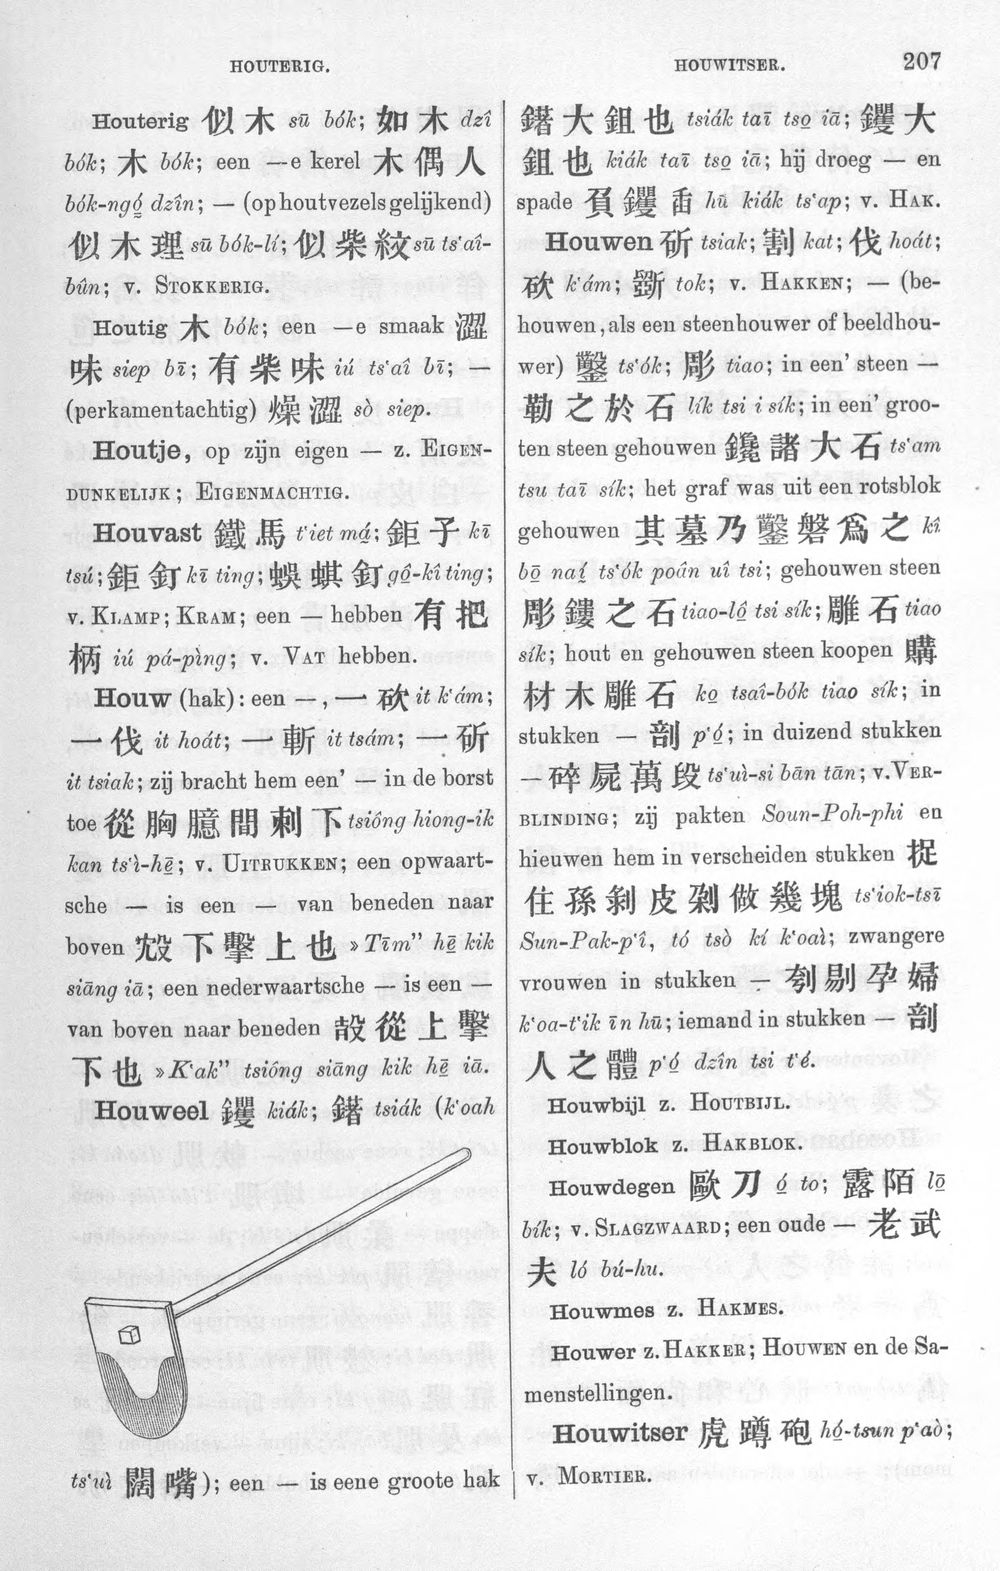 HOUTERIG.
HOUWITSER.
207
Houterig 似木 sū bók; 如木 dzî
bók; 木 bók; een —e kerel 木偶人
bók-ngó̤ dzîn; — (op houtvezels gelijkend)
似木理 sū bók-lí; 似柴紋 sū ts‘aî-
bûn; v. STOKKERIG.
Houtig 木 bók; een —e smaak 澀
味 siep bī; 有柴味 iú ts‘aî bī; —
(perkamentachtig) 燥澀 sò siep.
Houtje, op zijn eigen — z. EIGEN-
DUNKELIJK; EIGENMACHTIG.
Houvast 鐵馬 t‘iet má̤; 鉅子 kī
tsú; 鉅釘 kī ting; 蜈蜞釘 gô̤-kî ting;
v. KLAMP; KRAM; een — hebben 有把
柄 iú pá-pìng; v. VAT hebben.
Houw (hak): een —, 一砍 it k‘ám;
一伐 it hoát; 一斬 it tsám; 一斫
it tsiak; zij bracht hem een’ — in de borst
toe 從胸臆間刺下 tsióng hiong-ik
kan ts‘ì-hē̤; v. UITRUKKEN; een opwaart-
sche — is een — van beneden naar
boven 下擊上也 »Tīm” hē̤ kik
siāng iā; een nederwaartsche — is een —
van boven naar beneden 㱿從上擊
下也 »K‘ak” tsióng siāng kik hē̤ iā.
Houweel 钁 kiák; 鐯 tsiák (k‘oah
ts‘uì 闊嘴); een — is eene groote hak
鐯大鉏也 tsiák taī tso̤ iā; 钁大
鉏也 kiák taī tso̤ iā; hij droeg — en
spade 負钁臿 hū kiák ts‘ap; v. HAK.
Houwen 斫 tsiak; 割 kat; 伐 hoát;
砍 k‘ám; 斲 tok; v. HAKKEN; — (be-
houwen, als een steenhouwer of beeldhou-
wer) 鑿 ts‘ók; 彫 tiao; in een’ steen —
勒之於石 lík tsi i sík; in een’ groo-
ten steen gehouwen 鑱諸大石 ts‘am
tsu taī sík; het graf was uit een rotsblok
gehouwen 其墓乃鑿磐爲之 kî
bō naí̤ ts‘ók poân uî tsi; gehouwen steen
彫鏤之石 tiao-lō̤ tsi sík; 雕石 tiao
sík; hout en gehouwen steen koopen 購
材木雕石 ko̤ tsaî-bók tiao sík; in
stukken — 剖 p‘ó̤; in duizend stukken
— 碎屍萬段 ts‘uì-si bān tān; v. VER-
BLINDING; zij pakten Soun-Poh-phi en
hieuwen hem in verscheiden stukken 捉
住孫剝皮剁做幾塊 ts‘iok-tsī
Sun-Pak-p‘î, tó tsò kí k‘oaì; zwangere
vrouwen in stukken — 刳剔孕婦
k‘oa-t‘ik īn hū; iemand in stukken — 剖
人之體 p‘ó̤ dzîn tsi t‘é.
Houwbijl z. HOUTBIJL.
Houwblok z. HAKBLOK.
Houwdegen 歐刀 ó̤ to; 露陌 lō̤
bík; v. SLAGZWAARD; een oude — 老武
夫 ló bú-hu.
Houwmes z. HAKMES.
Houwer z. HAKKER; HOUWEN en de Sa-
menstellingen.
Houwitser 虎蹲砲 hó̤-tsun p‘aò;
v. MORTIER.